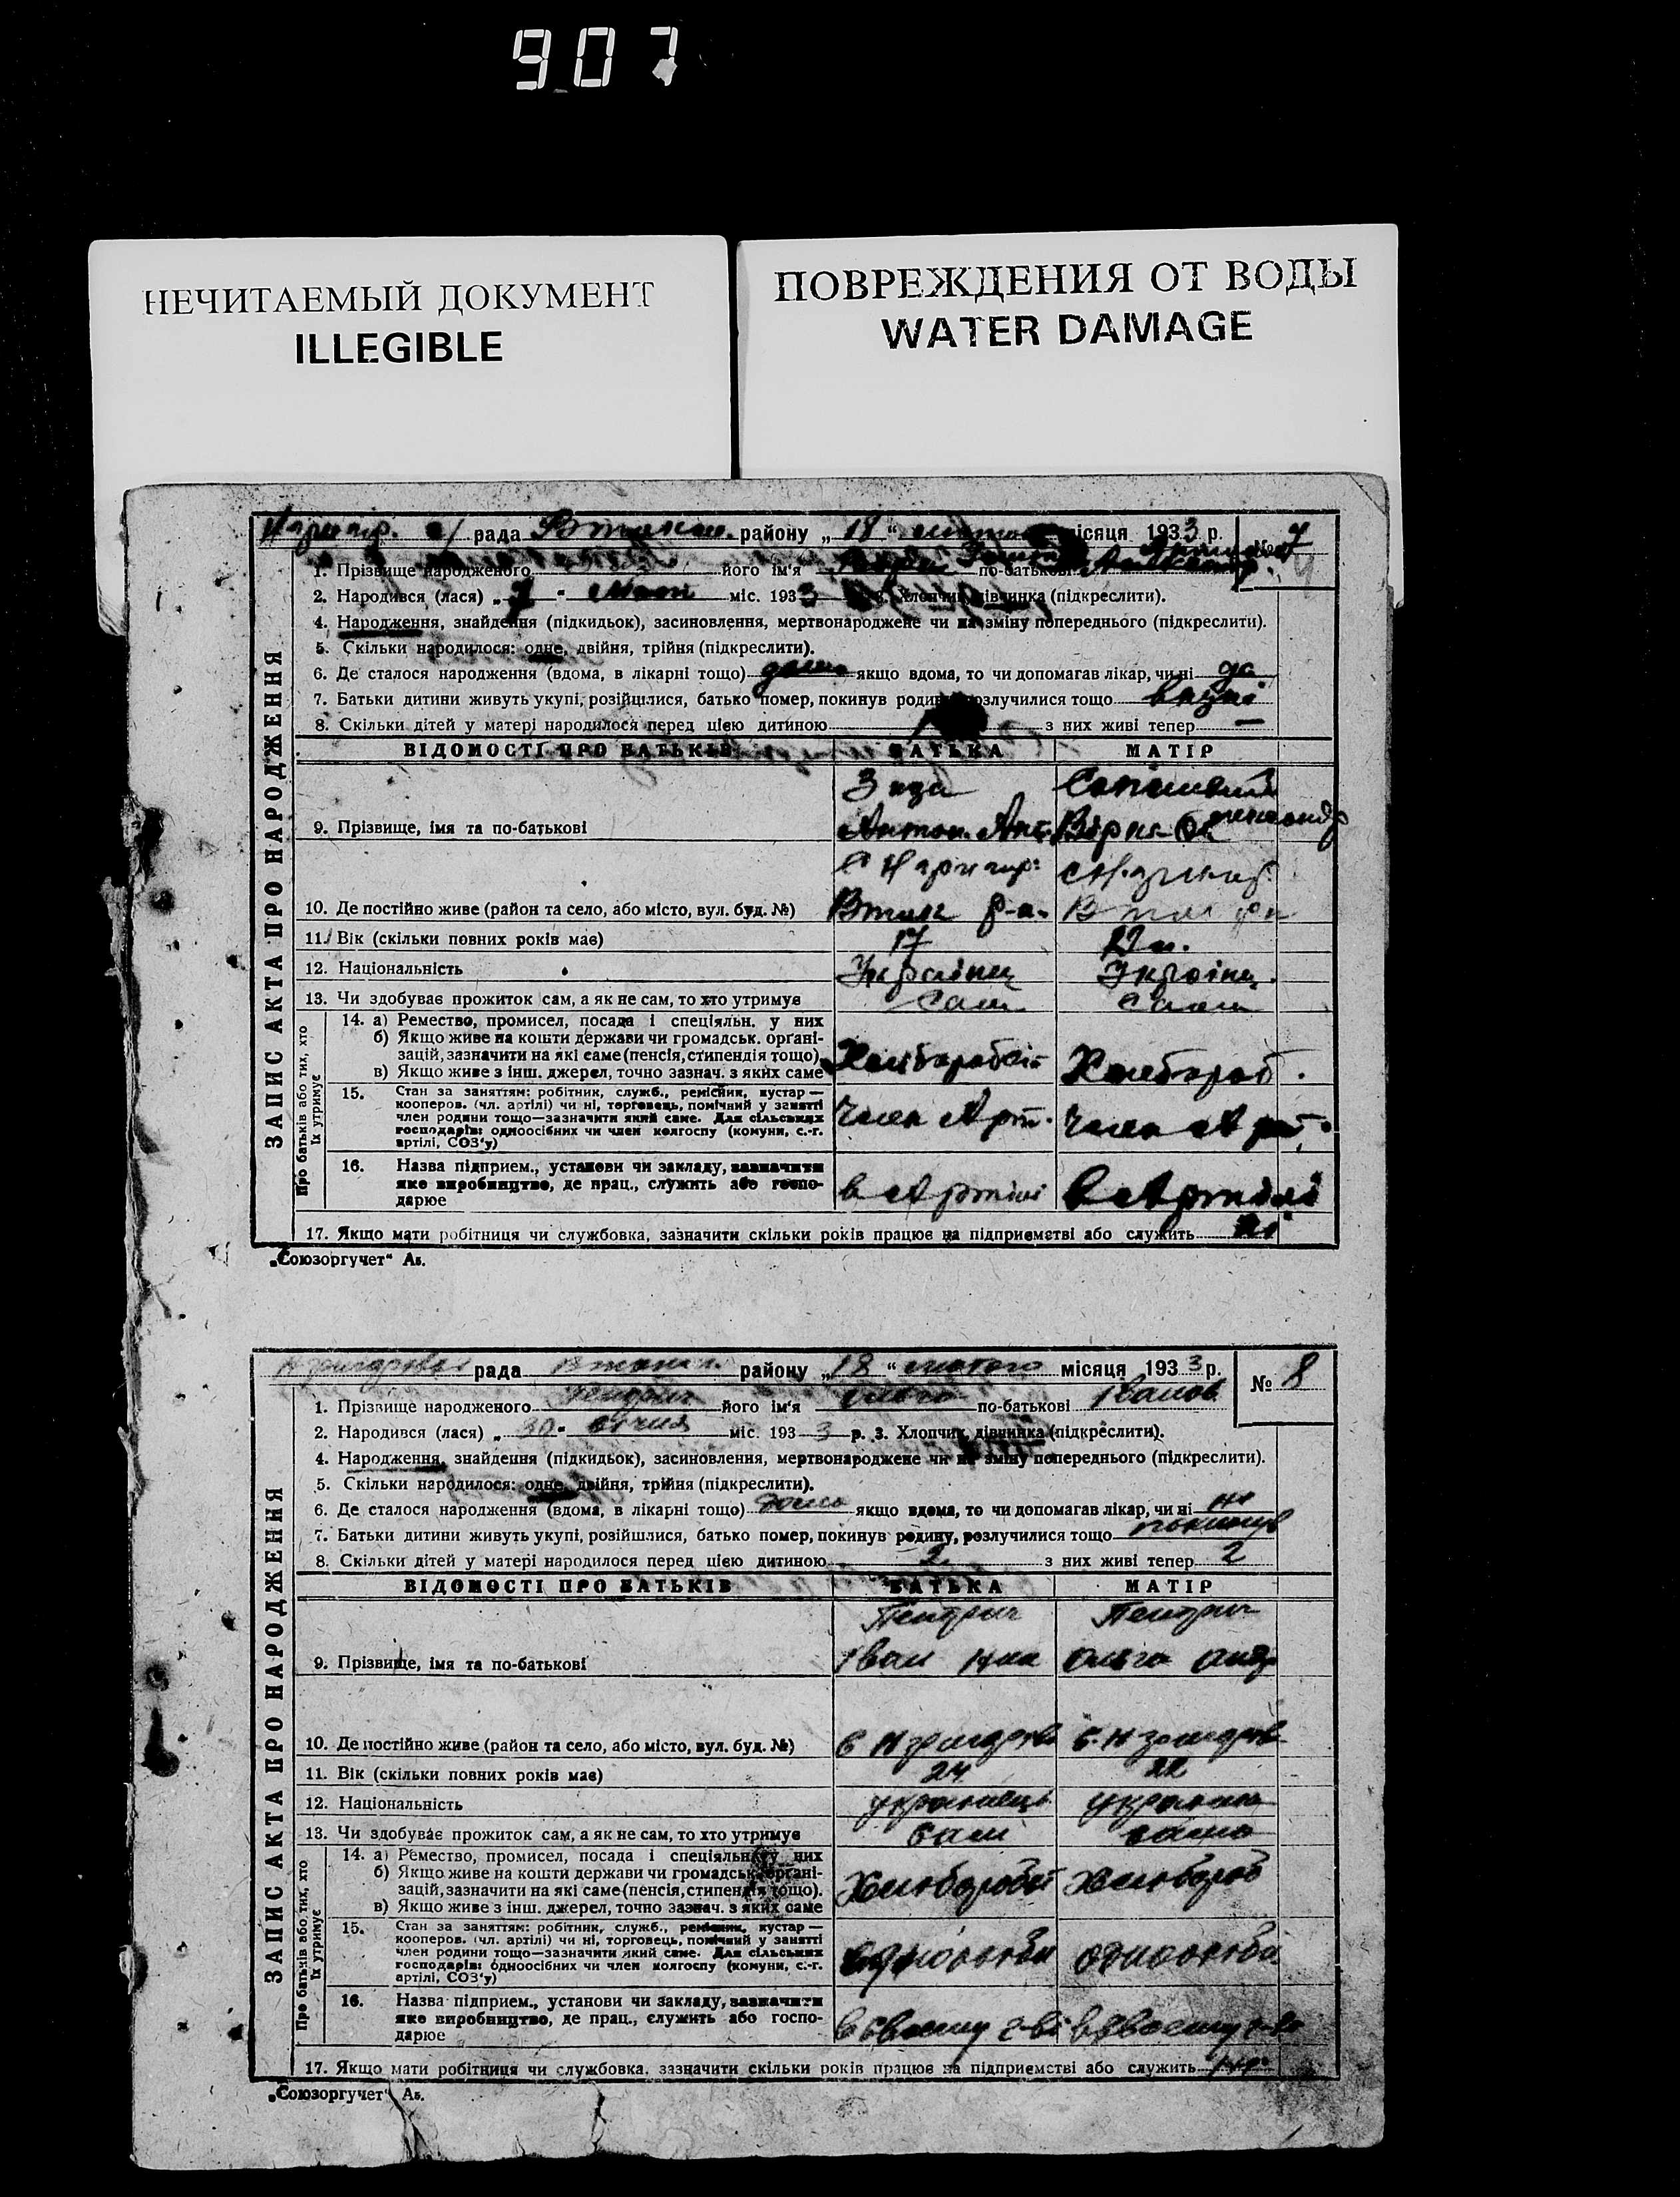 907
НЕЧИТАЕМЫЙ ДОКУМЕНТ
ILLEGIBLE
ПОВРЕЖДЕНИЯ ОТ ВОДЫ
WATER DAMAGE
рада району „ 18 “ місяця 1933 р. № 7
1. Прізвище народженого його ім'я по-батькові
2. Народився (лася) „ 7 " міс. 1933 3. Хлопчик, дівчинка (підкреслити).
4. Народження, знайдення (підкидьок), засиновлення, мертвонароджене чи на зміну попереднього (підкреслити).
5. Скільки народилося: одне, двійня, трійня (підкреслити).
6. Де сталося народження (вдома, в лікарні тощо) дома якщо вдома, то чи допомагав лікар, чи ні да
7. Батьки дитини живуть укупі, розійшлися, батько помер, покинув родину, розлучилися тощо вкупі
8. Скільки дітей у матері народилося перед цією дитиною з них живі тепер —
ЗАПИС АКТА ПРО НАРОДЖЕННЯ
ВІДОМОСТІ ПРО БАТЬКІВ БАТЬКА МАТІР
9. Прізвище, імя та по-батькові Антон. Ант.
10. Де постійно живе (район та село, або місто, вул. буд. №)
11. Вік (скільки повних років має) 17
12. Національність Українец Україн.
13. Чи здобуває прожиток сам, а як не сам, то хто утримує Сам Сам
Про батьків або тих, хто їх утримує
14. а) Ремество, промисел, посада і спеціяльн. у них
б) Якщо живе на кошти держави чи громадськ. органі-
зацій, зазначити на які саме (пенсія, стипендія тощо).
в) Якщо живе з інш. джерел, точно зазнач. з яких саме
Хлібороб.
15. Стан за заняттям: робітник, служб., ремісник, кустар —
кооперов. (чл. артілі) чи ні, торговець, помічний у занятті
член родини тощо—зазначити який саме. Для сільських
господарів: одноосібних чи член колгоспу (комуни, с.-г.
артілі, СОЗ'у)
Член Арт. Член Арт.
16. Назва підприєм., установи чи закладу, зазначити
яке виробництво, де прац., служить або госпо-
дарює
в Артілі в Артілі
17. Якщо мати робітниця чи службовка, зазначити скільки років працює на підприємстві або служить ні
„Союзоргучет“ Ав.
рада району „ 18 “ лютого місяця 1933 р. № 8
1. Прізвище народженого його ім'я Ольга по-батькові Іванов.
2. Народився (лася) „ 30 " січня міс. 1933 р. 3. Хлопчик, дівчинка (підкреслити).
4. Народження, знайдення (підкидьок), засиновлення, мертвонароджене чи на зміну попереднього (підкреслити).
5. Скільки народилося: одне, двійня, трійня (підкреслити).
6. Де сталося народження (вдома, в лікарні тощо) дома якщо вдома, то чи допомагав лікар, чи ні ні
7. Батьки дитини живуть укупі, розійшлися, батько помер, покинув родину, розлучилися тощо покинув
8. Скільки дітей у матері народилося перед цією дитиною 2 з них живі тепер 2
ЗАПИС АКТА ПРО НАРОДЖЕННЯ
ВІДОМОСТІ ПРО БАТЬКІВ БАТЬКА МАТІР
9. Прізвище, імя та по-батькові Іван Ольга
10. Де постійно живе (район та село, або місто, вул. буд. №)
11. Вік (скільки повних років має) 24 22
12. Національність українець українка
13. Чи здобуває прожиток сам, а як не сам, то хто утримує сам сама
Про батьків або тих, хто їх утримує
14. а) Ремество, промисел, посада і спеціяльн. у них
б) Якщо живе на кошти держави чи громадськ. органі-
зацій, зазначити на які саме (пенсія, стипендія тощо).
в) Якщо живе з інш. джерел, точно зазнач. з яких саме
Хлібороб
15. Стан за заняттям: робітник, служб., ремісник, кустар —
кооперов. (чл. артілі) чи ні, торговець, помічний у занятті
член родини тощо—зазначити який саме. Для сільських
господарів: одноосібних чи член колгоспу (комуни, с.-г.
артілі, СОЗ'у)
16. Назва підприєм., установи чи закладу, зазначити
яке виробництво, де прац., служить або госпо-
дарює
в своєму г-ві
17. Якщо мати робітниця чи службовка, зазначити скільки років працює на підприємстві або служить
„Союзоргучет“ Ав.